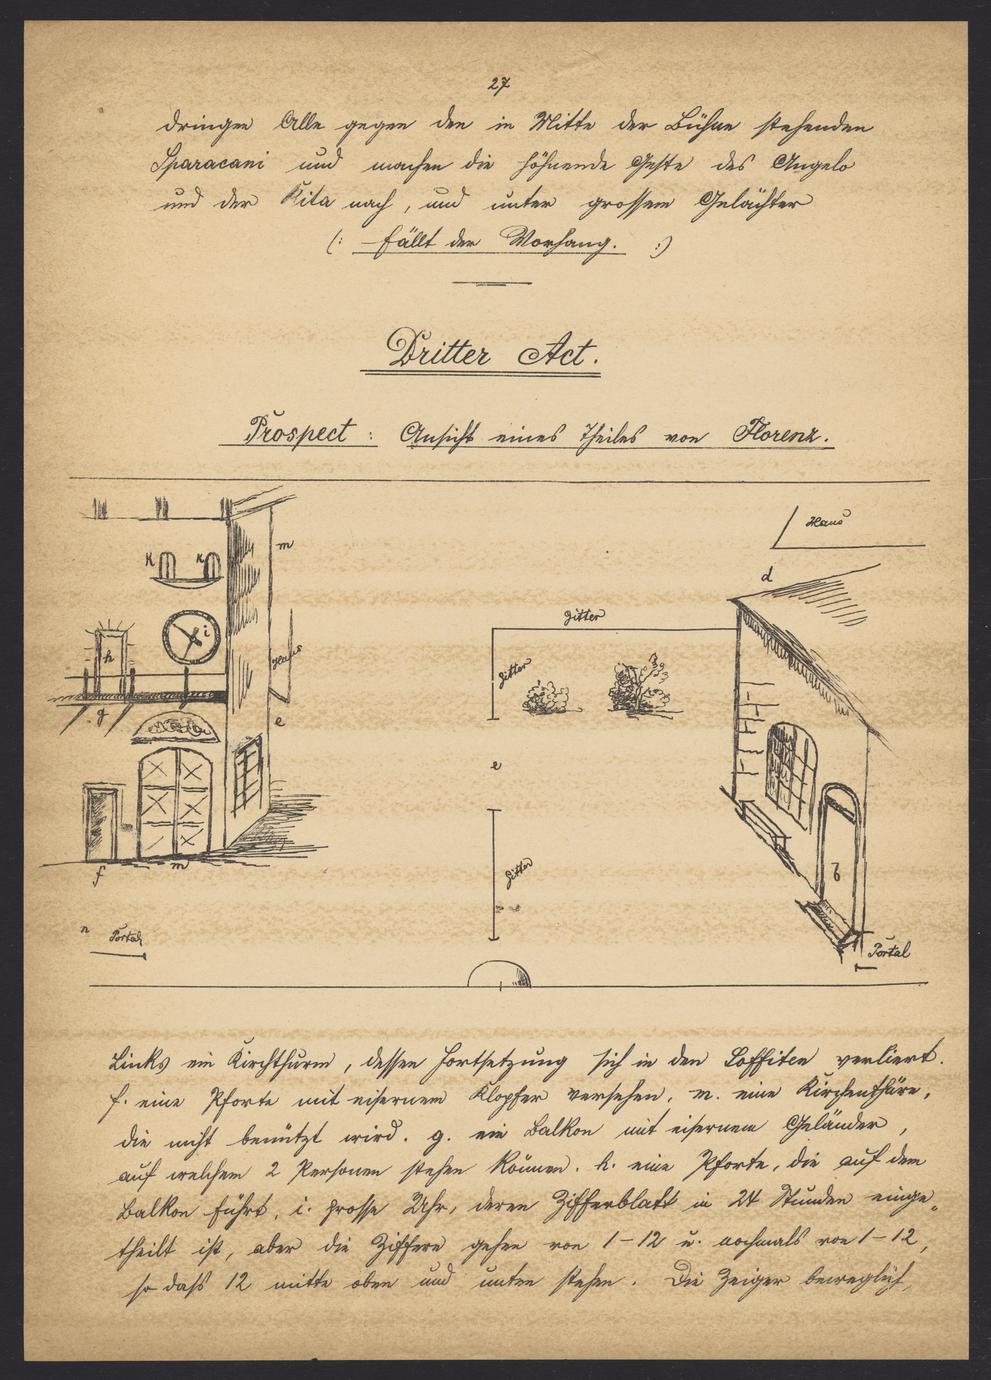 27
dringen Alle gegen den in Mitte der Bühne stehenden
Sparacani und machen die höhnende Geste des Angelo
und der Rita nach, und unter grossem Gelächter
(: fällt der Vorhang. :)
Dritter Act.
Prospect: Ansicht eines Theiles von Florenz.
Haus
m
K K
d
i
Gitter
h
Haus
Gitter
g
e
e
Gitter
b
f m
n Portal
Portal
Links ein Kirchthurm, dessen Fortsetzung sich in den Soffiten verliert.
f. eine Pforte mit eisernem Klopfer versehen. m. eine Kirchenthüre,
die nicht benützt wird. g. ein Balkon mit eisernem Geländer,
auf welchem 2 Personen stehen können. h. eine Pforte, die auf dem
Balkon führt, i. grosse Uhr, deren Zifferblatt in 24 Stunden einge„
theilt ist, aber die Ziffern gehen von 1–12 u. nochmals von 1–12,
so dass 12 mitte oben und unten stehen. Die Zeiger beweglich,